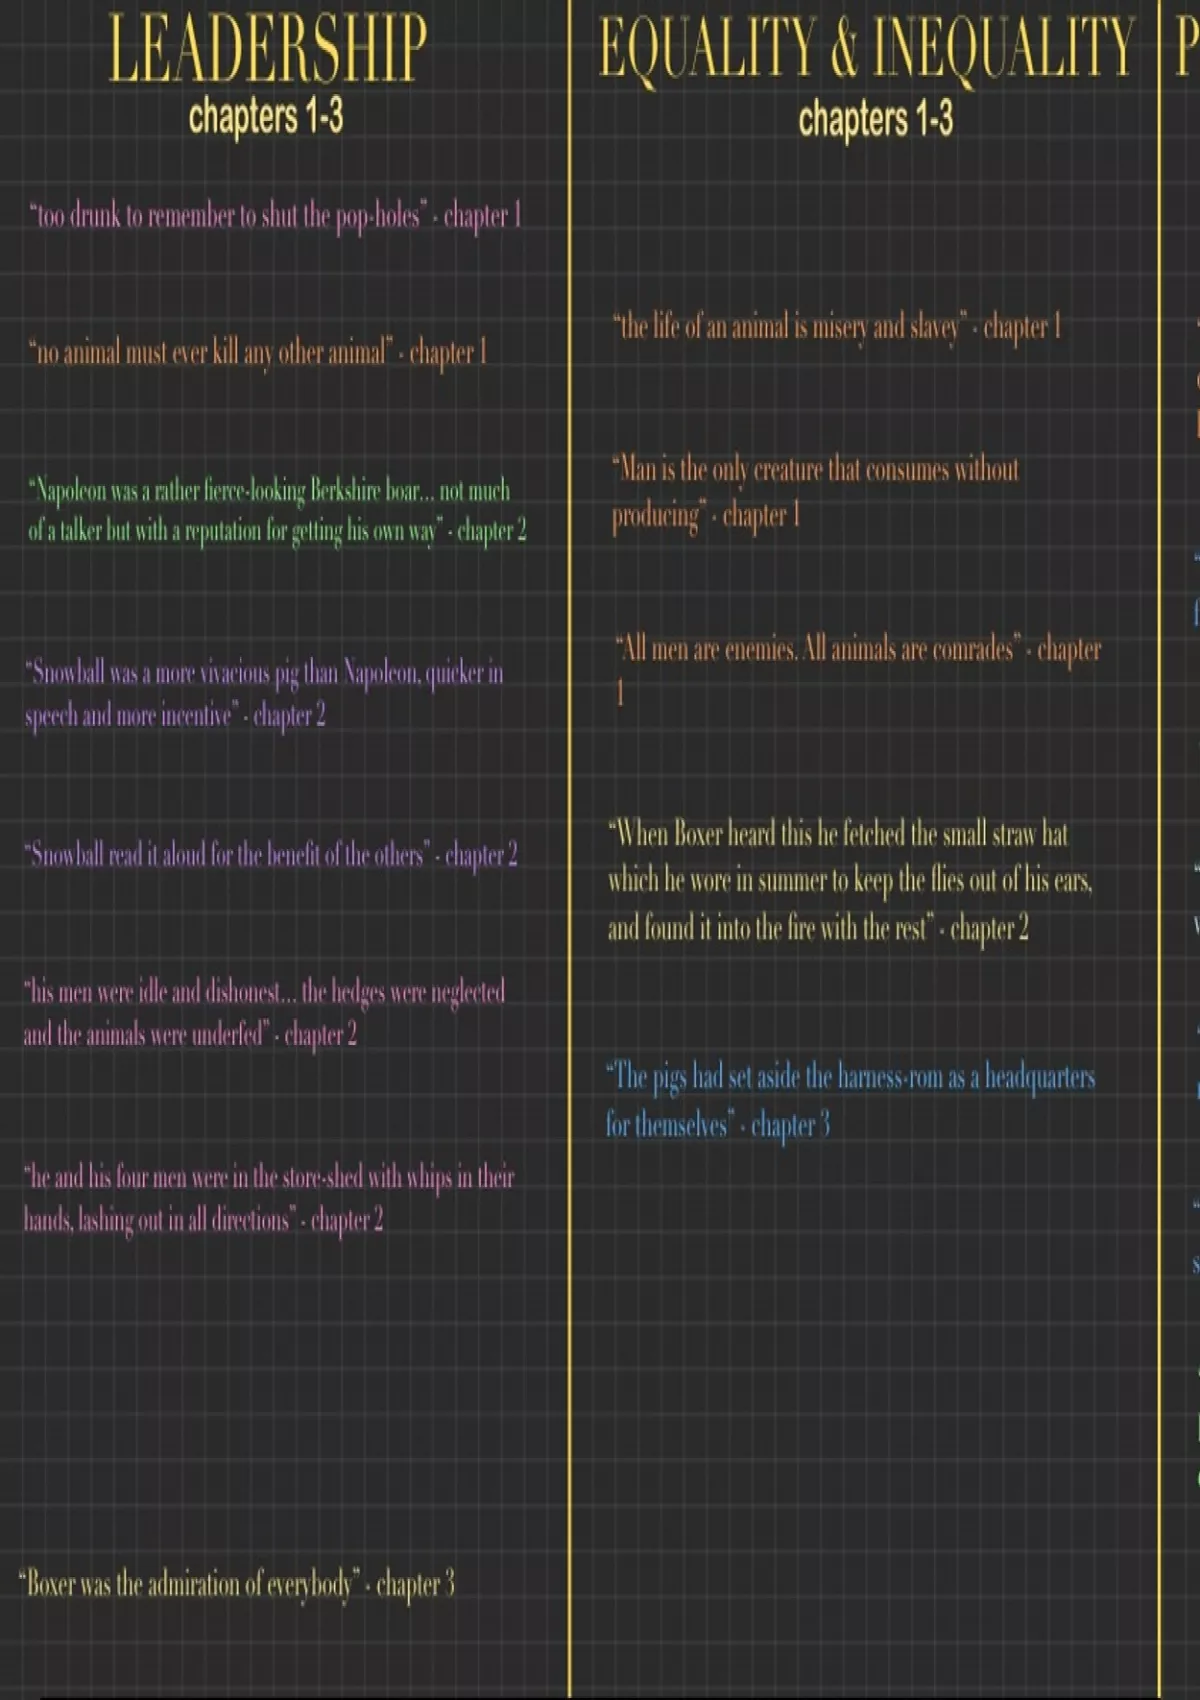 LEADERSHIP
chapters 1-3
“too drunk to remember to shut the pop-holes” - chapter 1
“no animal must ever kill any other animal” - chapter 1
“Napoleon was a rather fierce-looking Berkshire boar... not much
of a talker but with a reputation for getting his own way” - chapter 2
“Snowball was a more vivacious pig than Napoleon, quicker in
speech and more incentive” - chapter 2
“Snowball read it aloud for the benefit of the others” - chapter 2
“his men were idle and dishonest... the hedges were neglected
and the animals were underfed” - chapter 2
“he and his four men were in the store-shed with whips in their
hands, lashing out in all directions” - chapter 2
“Boxer was the admiration of everybody” - chapter 3
EQUALITY & INEQUALITY
chapters 1-3
“the life of an animal is misery and slavey” - chapter 1
“Man is the only creature that consumes without
producing” - chapter 1
“All men are enemies. All animals are comrades” - chapter
1
“When Boxer heard this he fetched the small straw hat
which he wore in summer to keep the flies out of his ears,
and found it into the fire with the rest” - chapter 2
“The pigs had set aside the harness-rom as a headquarters
for themselves” - chapter 3
P